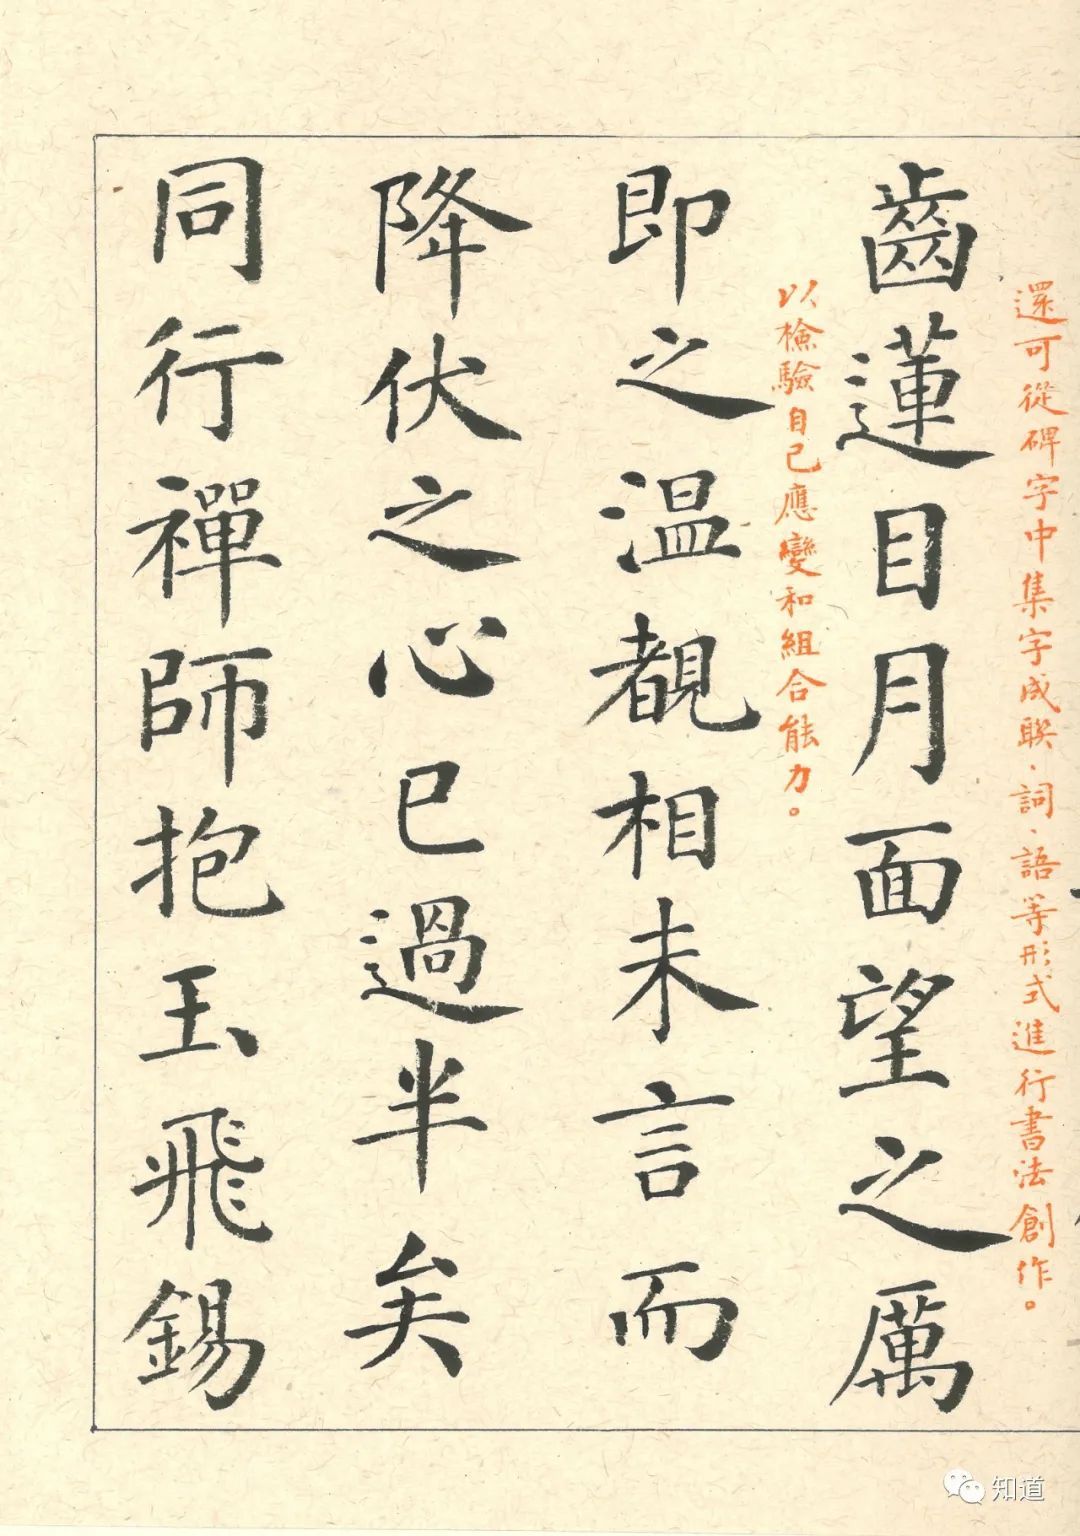 還可從碑字中集字成聯、詞、語等形式進行書法創作。
齒蓮目月面望之厲
以檢驗自己應變和組合能力。
即之温覩相未言而
降伏之心已過半矣
同行禪師抱玉飛錫
知道